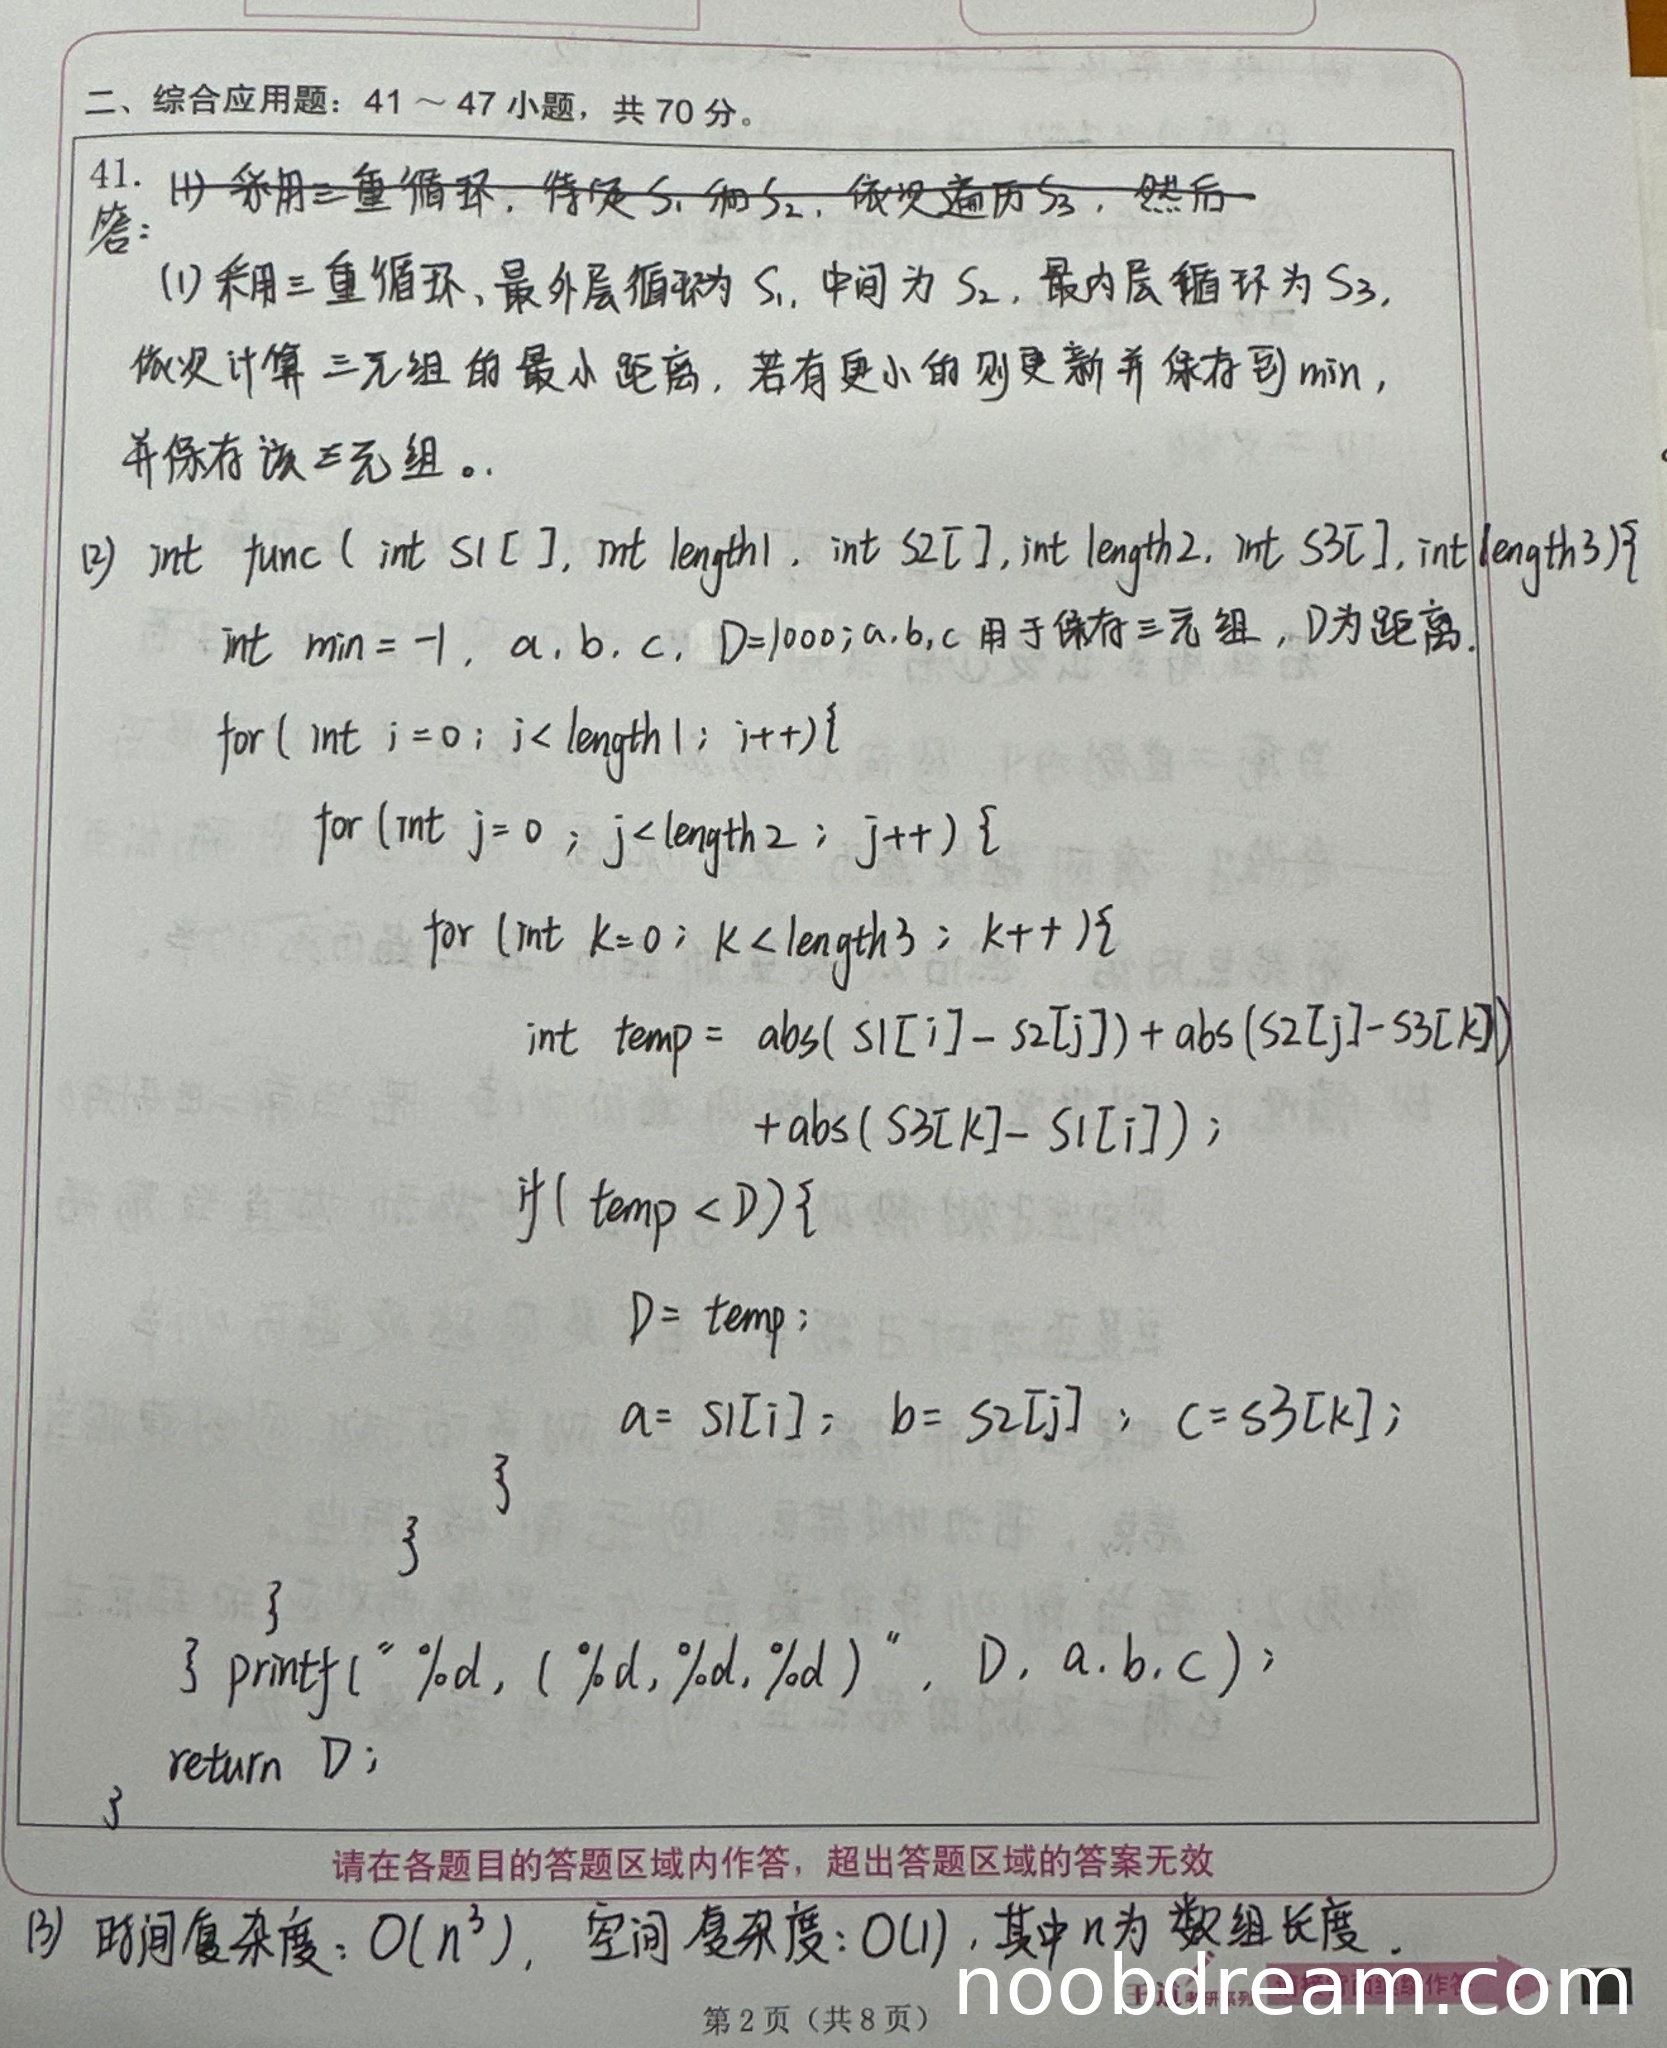 二、综合应用题：41～47小题，共70分。
41.
(1) 采用三重循环，待定S₁和S₂，依次遍历S₃，然后
答：
(1) 采用三重循环、最外层循环为S₁，中间为S₂，最内层循环为S₃，
依次计算三元组的最小距离，若有更小的则更新并保存到min，
并保存该三元组。.
(2) int func( int S1[ ], int length1, int S2[ ], int length2, int S3[ ], int length3){
int min = -1, a, b, c, D=1000; a,b,c用于保存三元组，D为距离.
for( int i=0; i<length1; i++){
for (int j=0; j<length2; j++) {
for (int k=0; k<length3; k++){
int temp = abs( S1[i]-S2[j])+abs(S2[j]-S3[k])
+abs(S3[k]-S1[i]);
if( temp < D){
D= temp;
a= S1[i]; b= S2[j]; c=S3[k];
}
}
}
} printf(" %d, (%d,%d,%d)", D, a,b,c);
return D;
}
请在各题目的答题区域内作答，超出答题区域的答案无效
(3) 时间复杂度：O(n³)，空间复杂度：O(1)，其中n为数组长度.
noobdream.com
第2页（共8页）